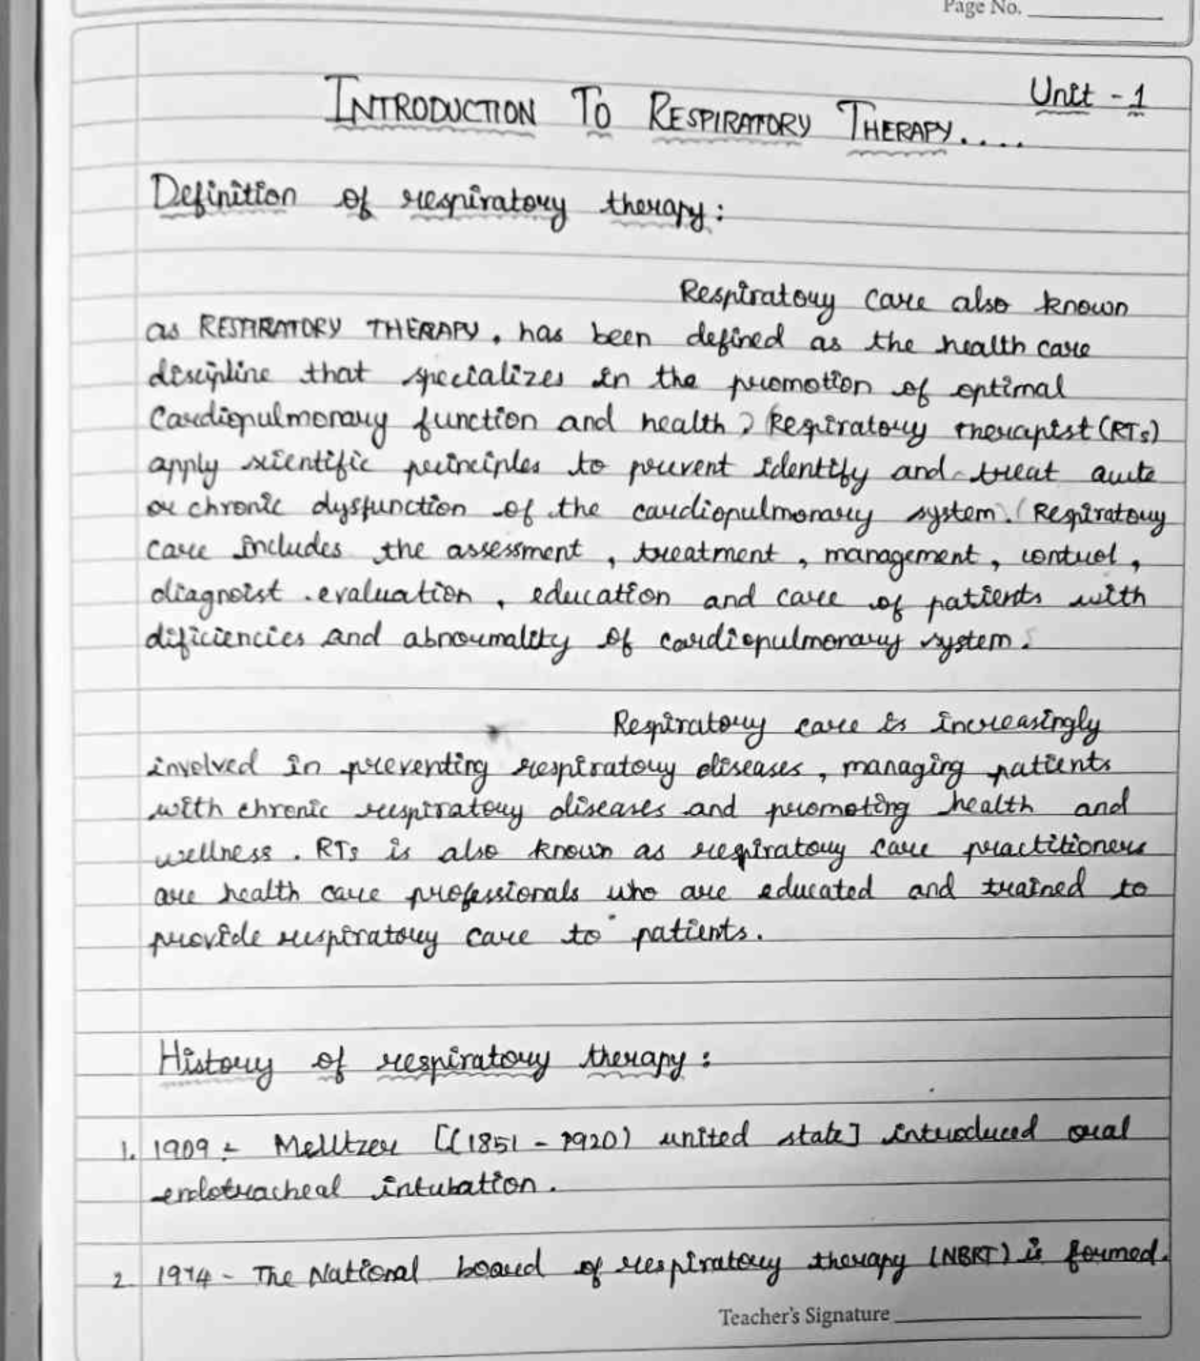 Page No.
Unit - 1
INTRODUCTION TO RESPIRATORY THERAPY....
Definition of respiratory therapy :
Respiratory care also known
as RESPIRATORY THERAPY, has been defined as the health care
discipline that specializes in the promotion of optimal
Cardiopulmonary function and health, Respiratory therapist (RTs)
apply scientific principles to prevent identify and treat acute
or chronic dysfunction of the cardiopulmonary system. (Respiratory
care includes the assessment , treatment , management , control ,
diagnoist . evaluation , education and care of patients with
dificiencies and abnormality of cardiopulmonary system.
Respiratory care is increasingly
involved in preventing respiratory diseases , managing patients
with chronic respiratory diseases and promoting health and
wellness . RTs is also known as respiratory care practitioners
are health care professionals who are educated and trained to
provide respiratory care to patients.
History of respiratory therapy :
1. 1909 :- Melltzer [(1851 - 1920) united state] introduced oral
endotracheal intubation.
2. 1974 - The National board of respiratory therapy (NBRT) is formed.
Teacher's Signature